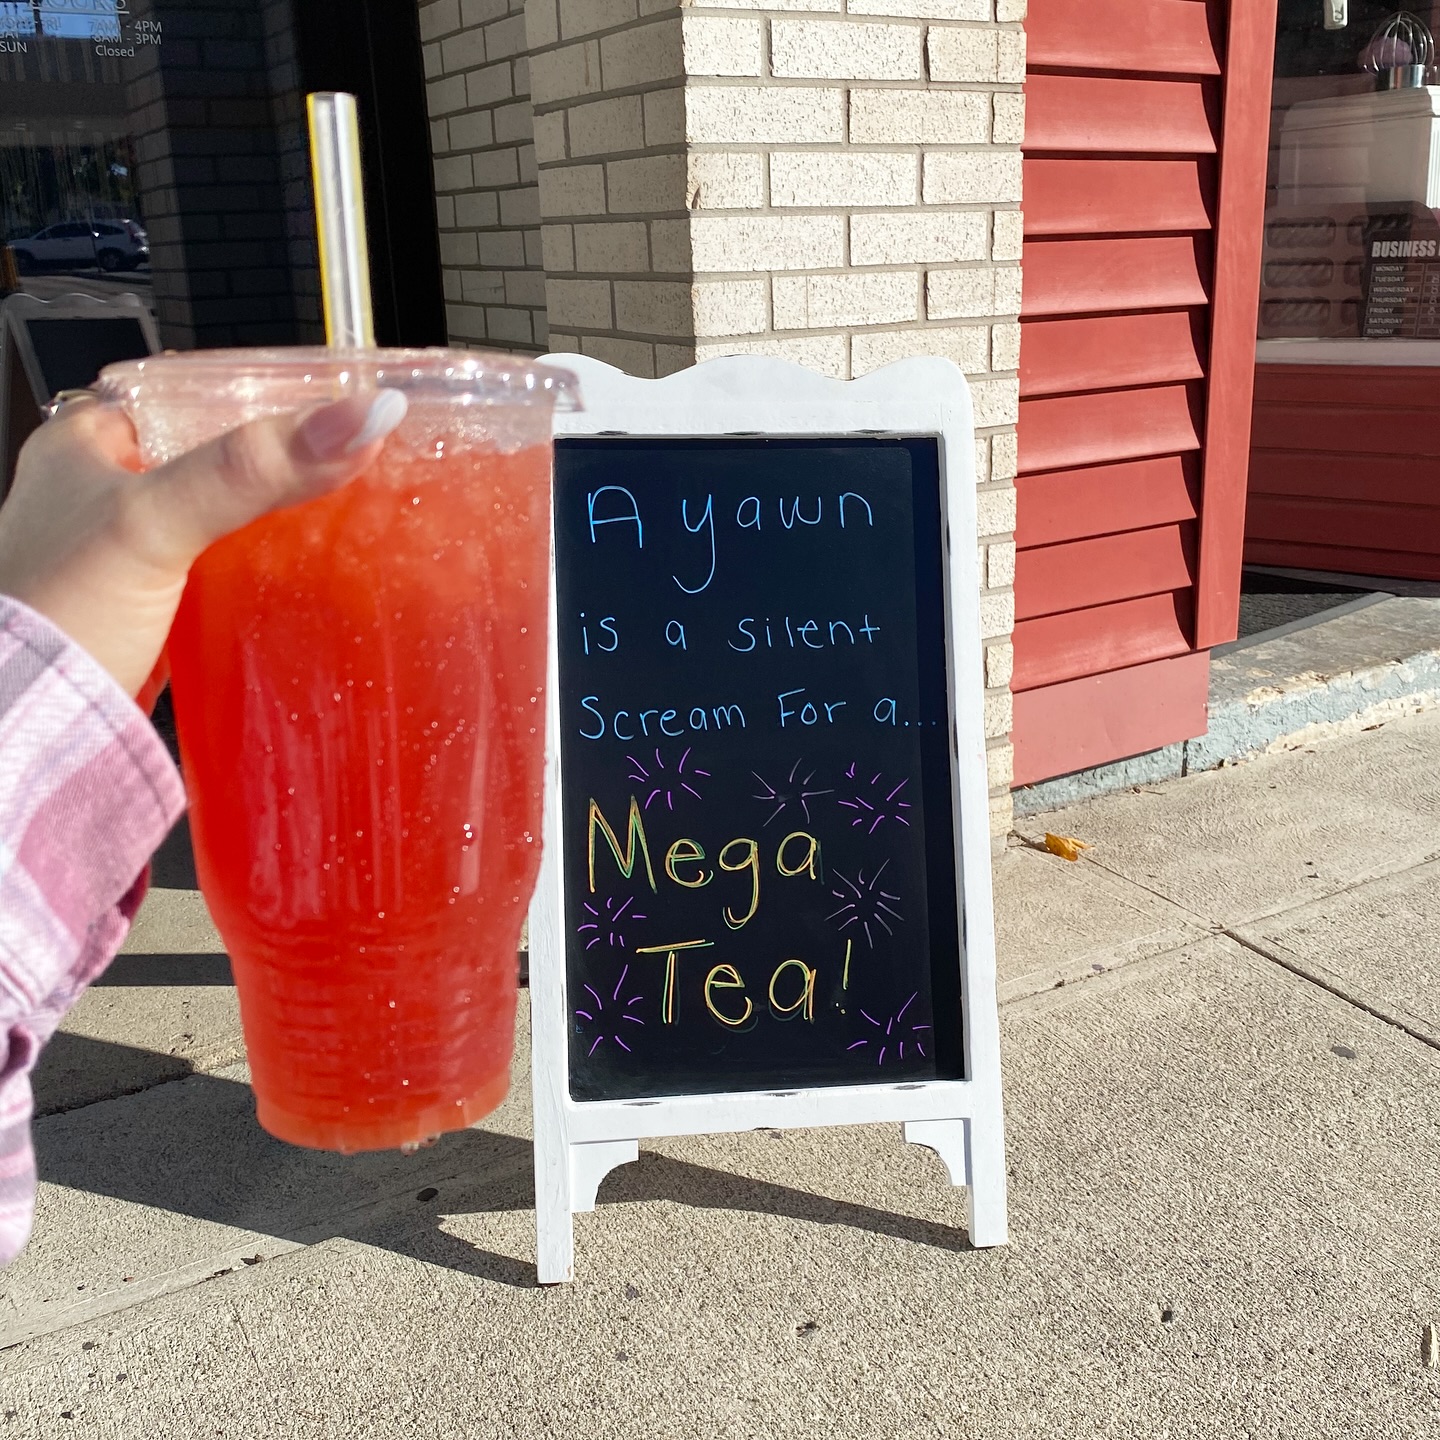 HOURS
FRI 7AM - 4PM
SAT 8AM - 3PM
SUN Closed
BUSINESS
MONDAY
TUESDAY
WEDNESDAY
THURSDAY
FRIDAY
SATURDAY
SUNDAY
A yawn
is a silent
Scream For a...
Mega
Tea!